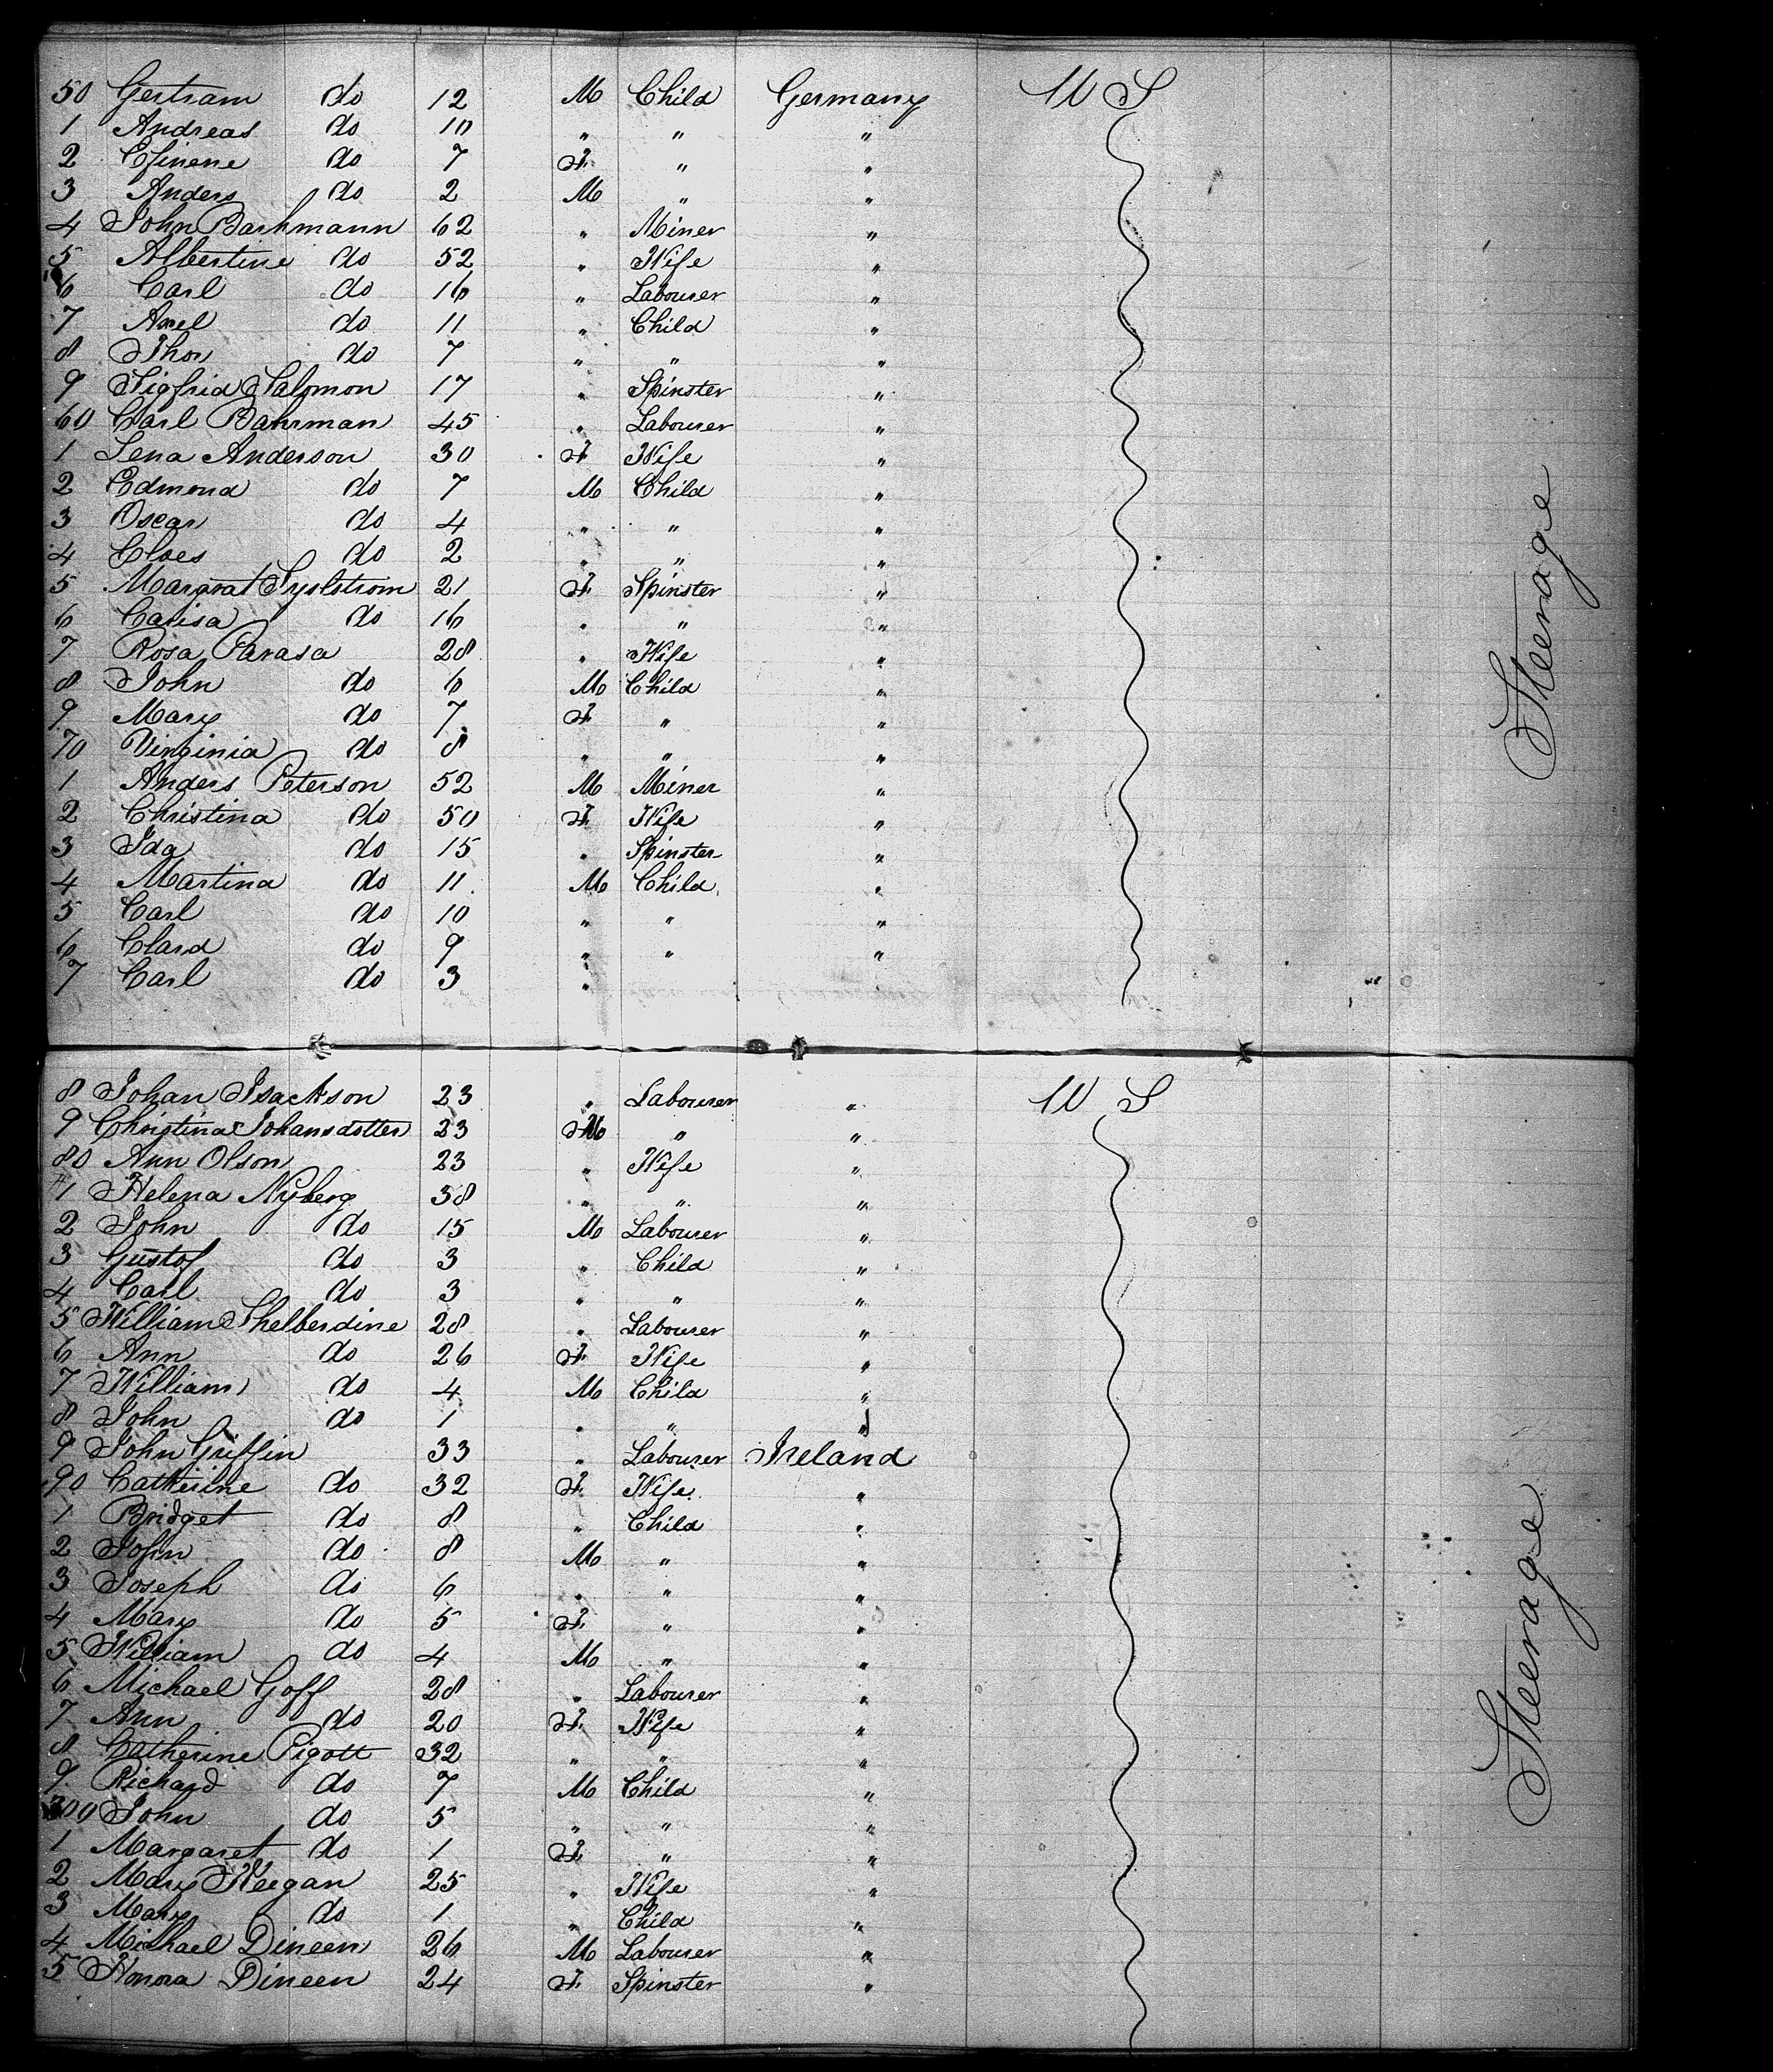 50 Gertram do 12 M Child Germany U S
1 Andreas do 10 " " "
2 Efinene do 7 F. " "
3 Anders do 2 M " "
4 John Barhmann 62 " Miner "
5 Albertine do 52 " Wife "
6 Carl do 16 " Labourer "
7 Axel do 11 " Child "
8 Thor do 7 " " "
9 Sigfrid Salomon 17 " Spinster "
60 Carl Bahrman 45 " Labourer "
1 Lena Anderson 30 F Wife "
2 Edmond do 7 M Child "
3 Oscar do 4 " " "
4 Cloes do 2 " " "
5 Margrat 21 F. Spinster "
6 Carisa do 16 " " "
7 Rosa Parasa 28 " Wife "
8 John do 6 M Child "
9 Mary do 7 F. " "
70 Virginia do 8 " " "
1 Anders Peterson 52 M Miner "
2 Christina do 50 F. Wife "
3 Ida do 15 " Spinster "
4 Martina do 11 M Child "
5 Carl do 10 " " "
6 Clard do 9 " " "
7 Carl do 3 "
Steerage
8 Johan Isackson 23 " Labourer " U S
9 Christina Johansdotter 23 M " "
80 Ann Olson 23 " Wife "
1 Helena Nyberg 38 " " "
2 John do 15 M Labourer "
3 Gustof do 3 " Child "
4 Carl do 3 " " "
5 William Shelberdine 28 " Labourer "
6 Ann do 26 F. Wife "
7 William do 4 M Child "
8 John do 1 " " "
9 John Griffin 33 " Labourer Ireland
90 Catherine do 32 F. Wife "
1 Bridget do 8 " Child "
2 John do 8 M " "
3 Joseph do 6 " " "
4 Mary do 5 F. " "
5 William do 4 M " "
6 Michael Goff 28 " Labourer "
7 Ann do 20 F. Wife "
8 Catherine Pigott 32 " " "
9 Richard do 7 M Child "
300 John do 5 " " "
1 Margaret do 1 F. " "
2 Mary Keegan 25 " Wife "
3 Mary do 1 " Child "
4 Michael Dineen 26 M Labourer "
5 Honora Dineen 24 F. Spinster "
Steerage